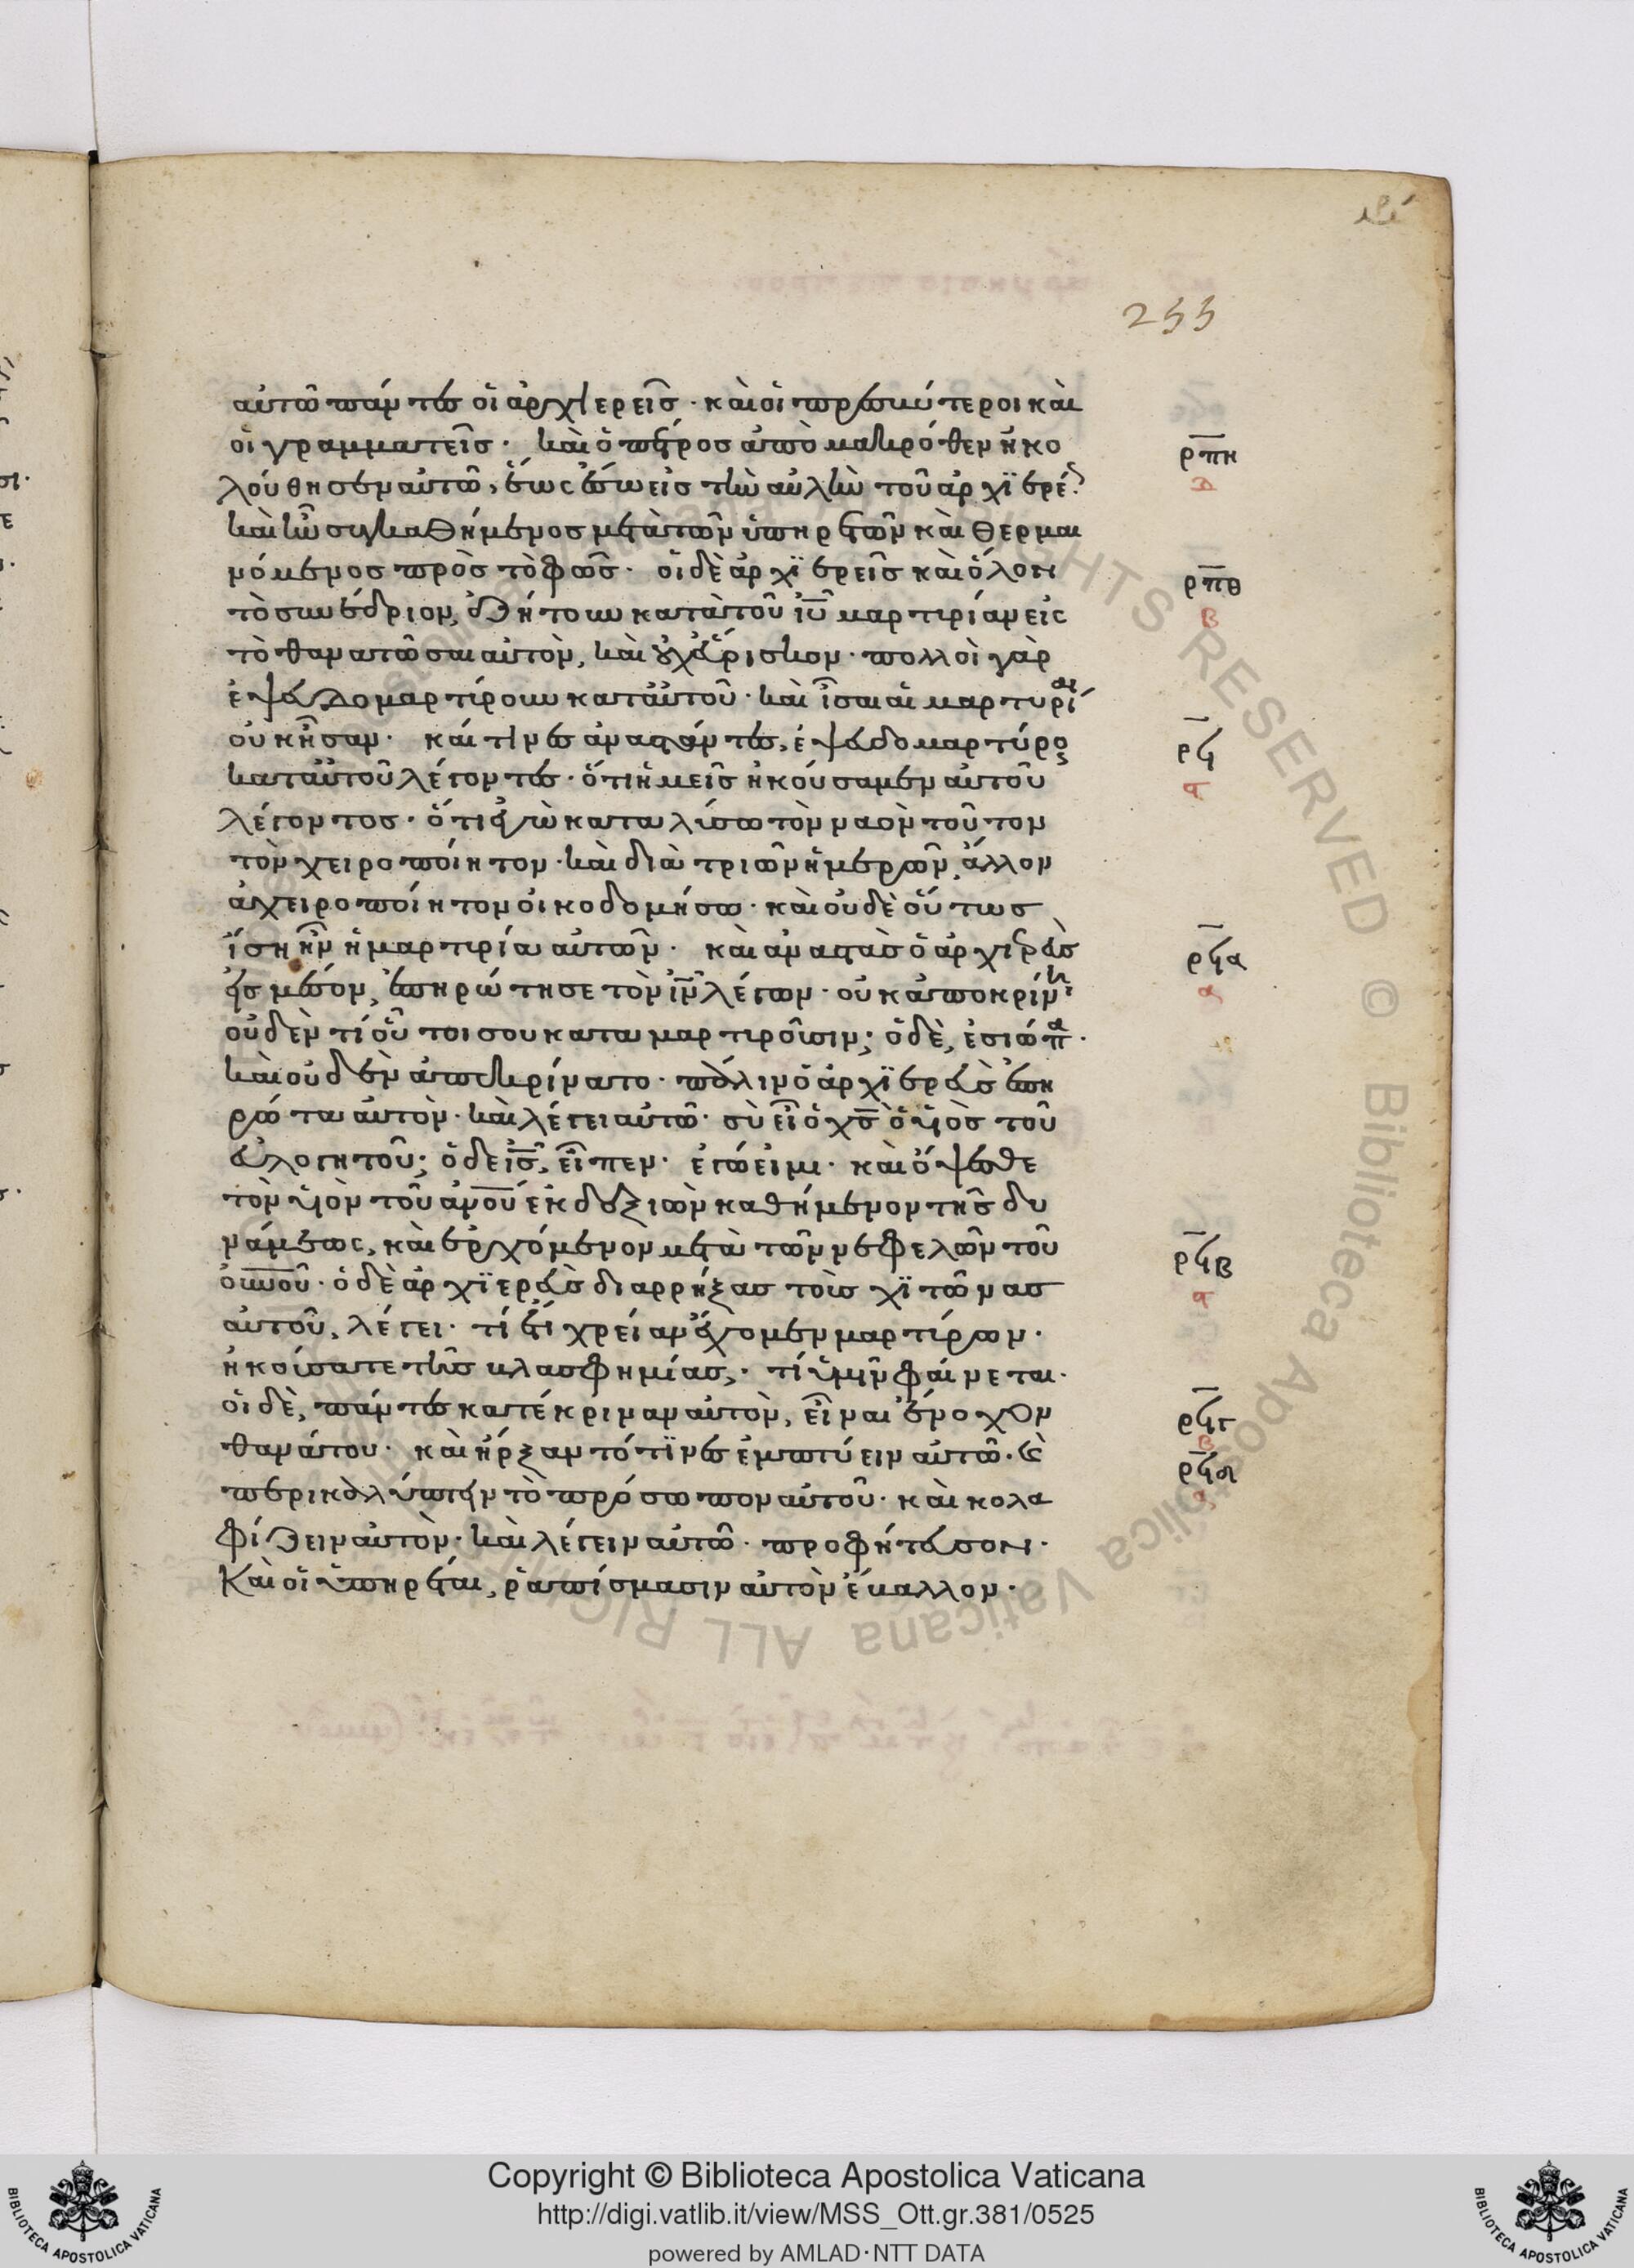 255
αὐτῶ πάντες οἱ ἀρχιερεῖς· καὶ οἱ πρεσβύτεροι καὶ
οἱ γραμματεῖς· καὶ ὁ πέτρος ἀπὸ μακρόθεν ἠκο
λούθησεν αὐτῶ, ἕως ἔσω εἰς τὴν αὐλὴν τοῦ ἀρχϊερέ
καὶ ἦν συγκαθήμενος μετὰ τῶν ὑπηρετῶν καὶ θερμαι
νόμενος πρὸς τὸ φῶς· οἱ δὲ ἀρχϊερεῖς καὶ ὅλον
τὸ συνέδριον, ἐζήτουν κατὰ τοῦ ἰυ μαρτυρίαν εἰς
τὸ θανατῶσαι αὐτὸν, καὶ οὐχ εὕρισκον· πολλοὶ γὰρ
ἐψευδομαρτύρουν κατ' αὐτοῦ· καὶ ἶσαι αἱ μαρτυρίαι
οὐκ ἦσαν· καί τινες ἀναστάντες, ἐψευδομαρτύρου
κατ' αὐτοῦ λέγοντες· ὅτι ἡμεῖς ἠκούσαμεν αὐτοῦ
λέγοντος· ὅτι ἐγὼ καταλύσω τὸν ναὸν τοῦτον
τὸν χειροποίητον· καὶ διὰ τριῶν ἡμερῶν, ἄλλον
ἀχειροποίητον οἰκοδομήσω· καὶ οὐδὲ οὕτως
ἴση ἦν ἡ μαρτυρία αὐτῶν· καὶ ἀναστὰς ὁ ἀρχιερεὺς
εἰς μέσον, ἐπηρώτησε τὸν ἰν λέγων· οὐκ ἀποκρίνη
οὐδὲν τί οὗτοι σου καταμαρτυροῦσιν; ὁ δὲ, ἐσιώπα·
καὶ οὐδὲν ἀπεκρίνατο· πάλιν ὁ ἀρχϊερεὺς ἐπη
ρώτα αὐτὸν· καὶ λέγει αὐτῶ· σὺ εἶ ὁ χς ὁ υἱὸς τοῦ
εὐλογητοῦ; ὁ δὲ ις, εἶπεν· ἐγώ εἰμι· καὶ ὄψεσθε
τὸν υἱὸν τοῦ ανου ἐκ δεξιῶν καθήμενον τῆς δυ
νάμεως, καὶ ἐρχόμενον μετὰ τῶν νεφελῶν τοῦ
ουνου· ὁ δὲ ἀρχϊερεὺς διαρρήξας τοὺς χϊτῶνας
αὐτοῦ, λέγει· τί ἔτι χρείαν ἔχομεν μαρτύρων·
ἠκούσατε τῆς βλασφημίας,· τί ὑμῖν φαίνεται·
οἱ δὲ, πάντες κατέκριναν αὐτὸν, εἶναι ἔνοχον
θανάτου· καὶ ἤρξαντό τϊνες ἐμπτύειν αὐτῶ· καὶ
περικαλύπτειν τὸ πρόσωπον αὐτοῦ· καὶ κολα
φίζειν αὐτὸν· καὶ λέγειν αὐτῶ· προφήτευσον·
Καὶ οἱ ὑπηρέται, ῥαπίσμασιν αὐτὸν ἔβαλλον·
ρπη
ρπθ
β
ρϟ
α
ρϟα
ρϟβ
α
ρϟγ
β
ρϟδ
Copyright © Biblioteca Apostolica Vaticana
http://digi.vatlib.it/view/MSS_Ott.gr.381/0525
powered by AMLAD·NTT DATA
BIBLIOTECA APOSTOLICA VATICANA
BIBLIOTECA APOSTOLICA VATICANA